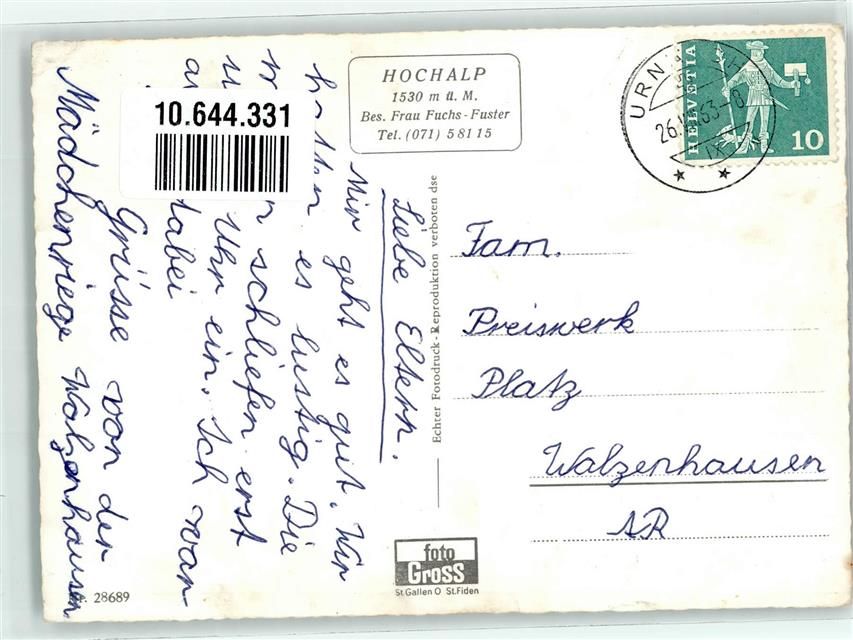 HOCHALP
1530 m ü. M.
Bes. Frau Fuchs-Fuster
Tel. (071) 58115
HELVETIA
10
URN
26. 63-8
10.644.331
Liebe Eltern.
Mir geht es gut. Wir
hatten es lustig. Die
schliefen erst
Uhr ein. Ich war
dabei
Grüsse von der
Mädchenriege Walzenhausen
Echter Fotodruck - Reproduktion verboten dse
Fam.
Preiswerk
Platz
Walzenhausen
AR
foto
Gross
St. Gallen O St. Fiden
28689